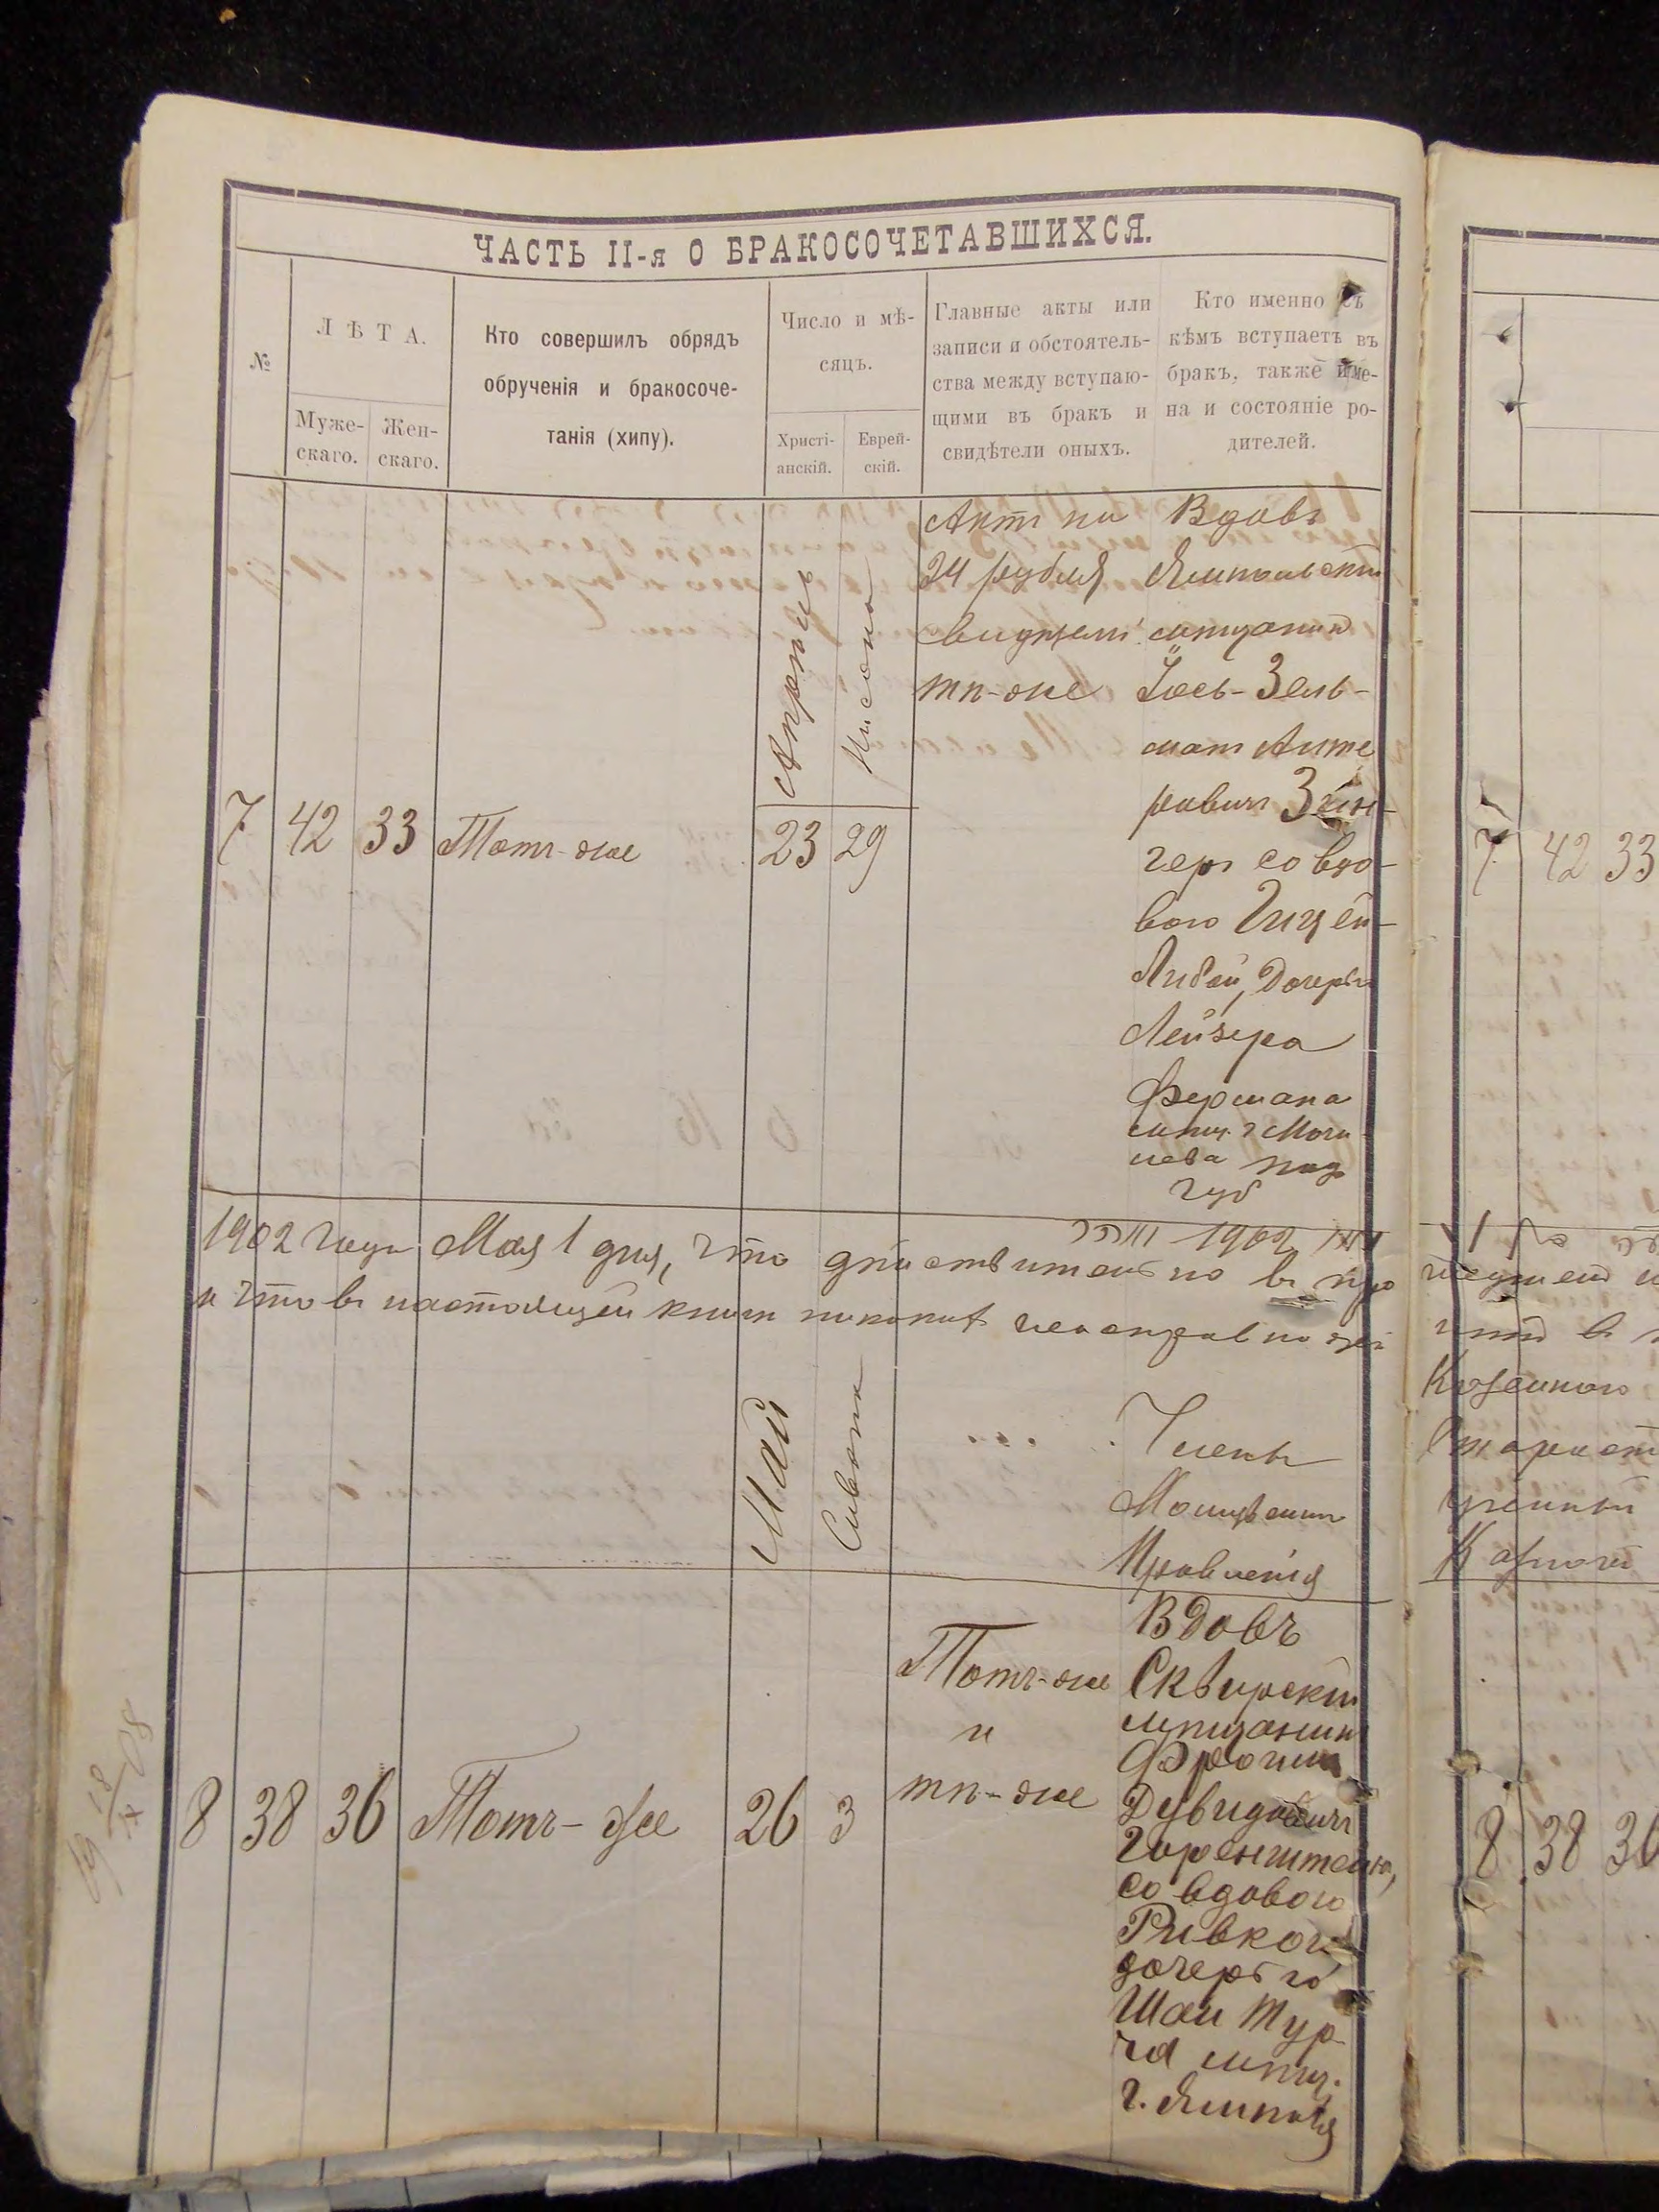 ЧАСТЬ II-я О БРАКОСОЧЕТАВШИХСЯ.
№
ЛѢТА.
Муже-
скаго.
Жен-
скаго.
Кто совершилъ обрядъ
обрученія и бракосоче-
танія (хипу).
Число и мѣ-
сяцъ.
Христі-
анскій.
Еврей-
скій.
Главные акты или
записи и обстоятель-
ства между вступаю-
щими въ бракъ и
свидѣтели оныхъ.
Кто именно съ
кѣмъ вступаетъ въ
бракъ, также име-
на и состояніе ро-
дителей.
7
42
33
Тотъ-же
Апрѣль
23
Нисона
29
Актъ на
24 рубля
свидѣтели
тѣ-же
Вдовъ
Ямпольскій
мѣщанинъ
Іось-Зель-
манъ
ровичъ
геръ со вдо-
вою
Либой, Дочерью
Лейзера
Фермана
мѣщ. г Моги
лева под
губ
1902 года Мая 1 дня, что дѣйствительно въ про
и что въ настоящей книги никакихъ неисправностей
Май
Сивона
Члены
Мѣщанск
Правленія
8
38
36
Тотъ-же
26
3
Тотъ-же
и
тѣ-же
Вдовъ
Сквирскій
мѣщанинъ
Дувидовичъ
Горенштейнъ,
со вдовою
Ривкой
дочерью
Шаи Тур-
ча мѣщ.
г. Ямполя
7
42
33
Казеннаго
8
38